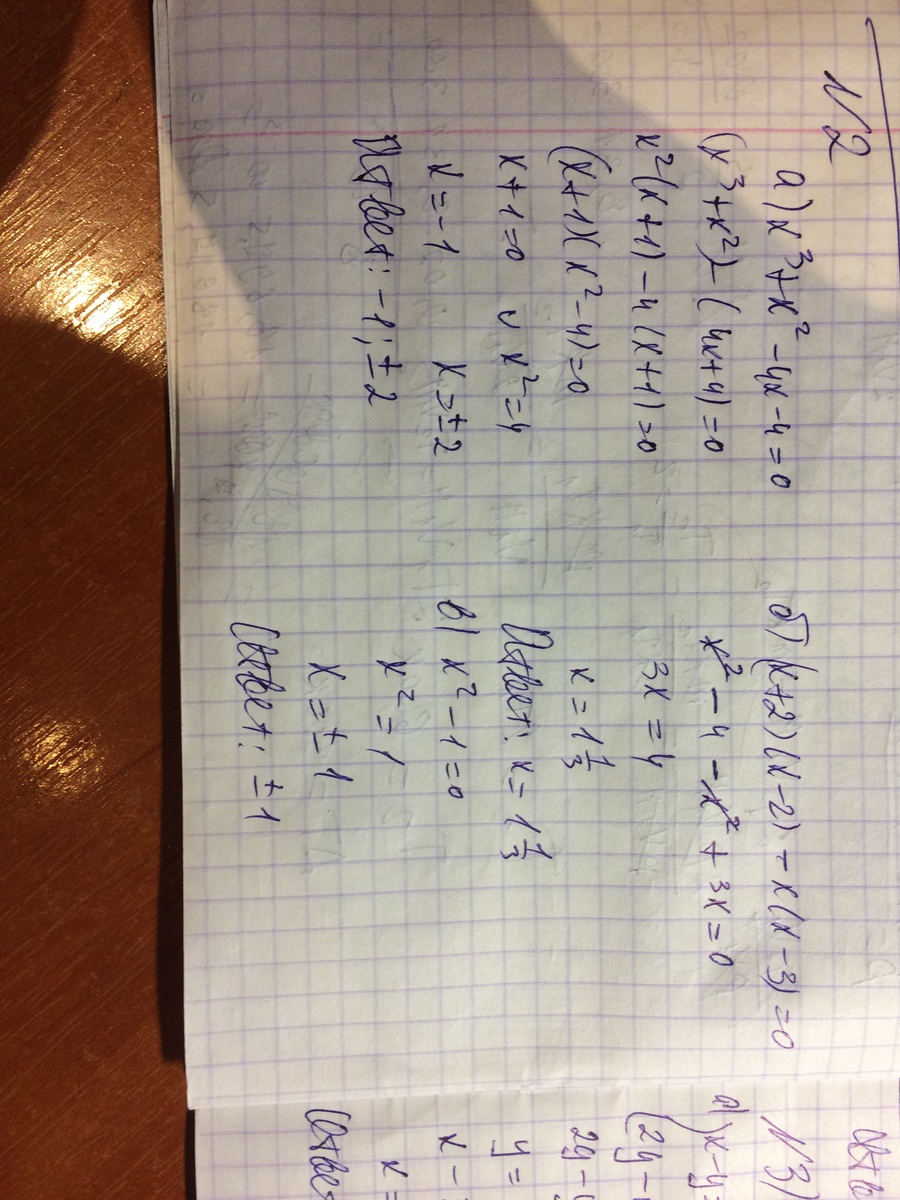 N2
а) x³+x²-4x-4=0
(x³+x²)-(4x+4)=0
x²(x+1)-4(x+1)=0
(x+1)(x²-4)=0
x+1=0 ∨ x²=4
x=-1 x=±2
Ответ: -1; ±2
б) (x+2)(x-2)-x(x-3)=0
x²-4-x²+3x=0
3x=4
x=1 1/3
Ответ: x=1 1/3
в) x²-1=0
x²=1
x=±1
Ответ: ±1
N3
а) x-y=
(2y-
2y-
y=
x-
x=